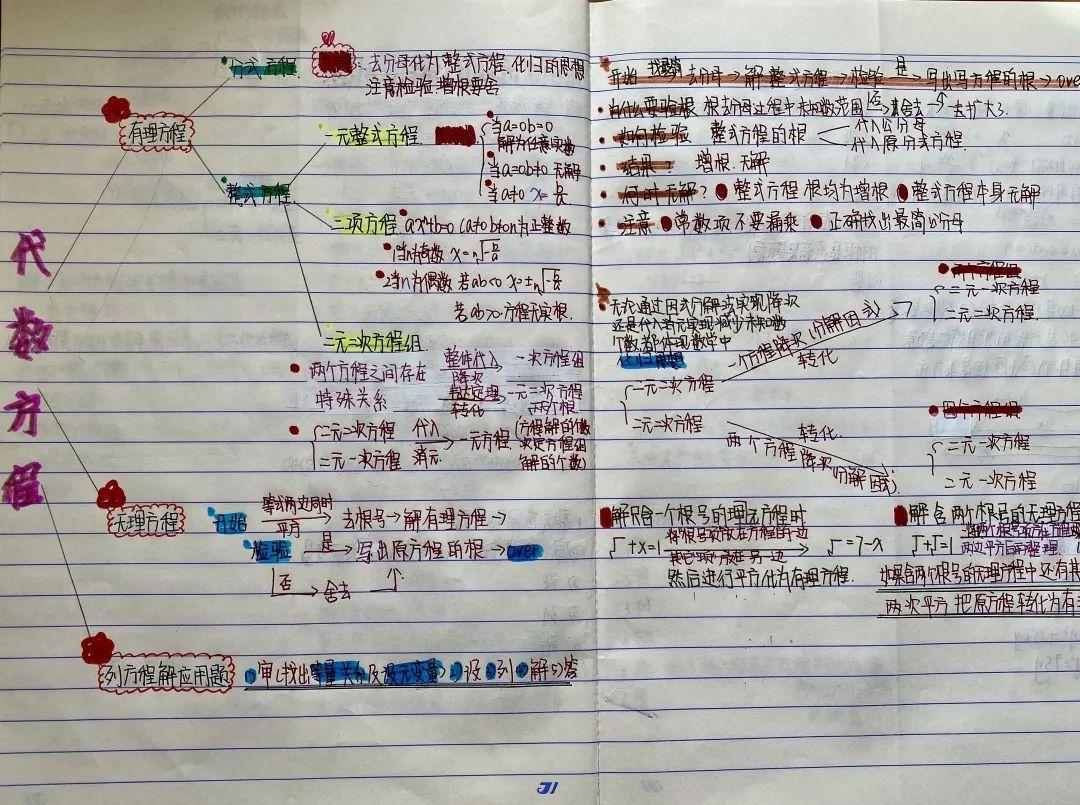 代数方程
有理方程
分式方程
:去分母化为整式方程.化归的思想
注意检验增根要舍
整式方程
一元整式方程
当a=0b=0
解为任意实数
当a=0b≠0 无解
当a≠0 x=
二项方程 axⁿ+b=0 (a≠0 b≠0 n为正整数
1当n为奇数 x=
2当n为偶数 若ab<0 x=±
若ab>0 方程无实根.
二元二次方程组
两个方程之间存在
特殊关系
整体代入
降次
一次方程组
韦达定理
转化
一元二次方程
两个根
二元二次方程
二元一次方程
代入
消元
一元方程
(方程解的个数
决定方程组
解的个数)
无理方程
开始
等式两边同时
平方
去根号→解有理方程→
检验 是→ 写出原方程的根→over
否→舍去
列方程解应用题
①审(找出等量关系及设元变量)2)设③列④解5)答
开始 去分母→解整式方程→检验 是→写出写方程的根→over
否→舍去
·为什么要验根 根去分母过程中未知数范围 去扩大了.
·如何检验 整式方程的根
代入公分母
代入原分式方程.
·结果: 增根.无解
·何时无解? 整式方程根均为增根 整式方程本身无解
·注意 常数项不要漏乘 正确找出最简公分母
无论通过因式分解法实现降次
还是代入消元实现减少未知数
个数都体现数学中
化归思想
二元二次方程
二元二次方程
一个方程降次(分解因式)
转化
二元一次方程
二元二次方程.
两个方程降次(分解因式)
转化.
二元一次方程
二元一次方程
解只含一个根号的理元方程时
√+x=1
将根号项放在方程的一边
其它项放在另一边
√=7-x
然后进行平方化为有理方程.
解含两个根号的无理方程
√+√=1
将两个根号
两边平方后整理
如果含两个根号的无理方程中还有其
两次平方 把原方程转化为有
71